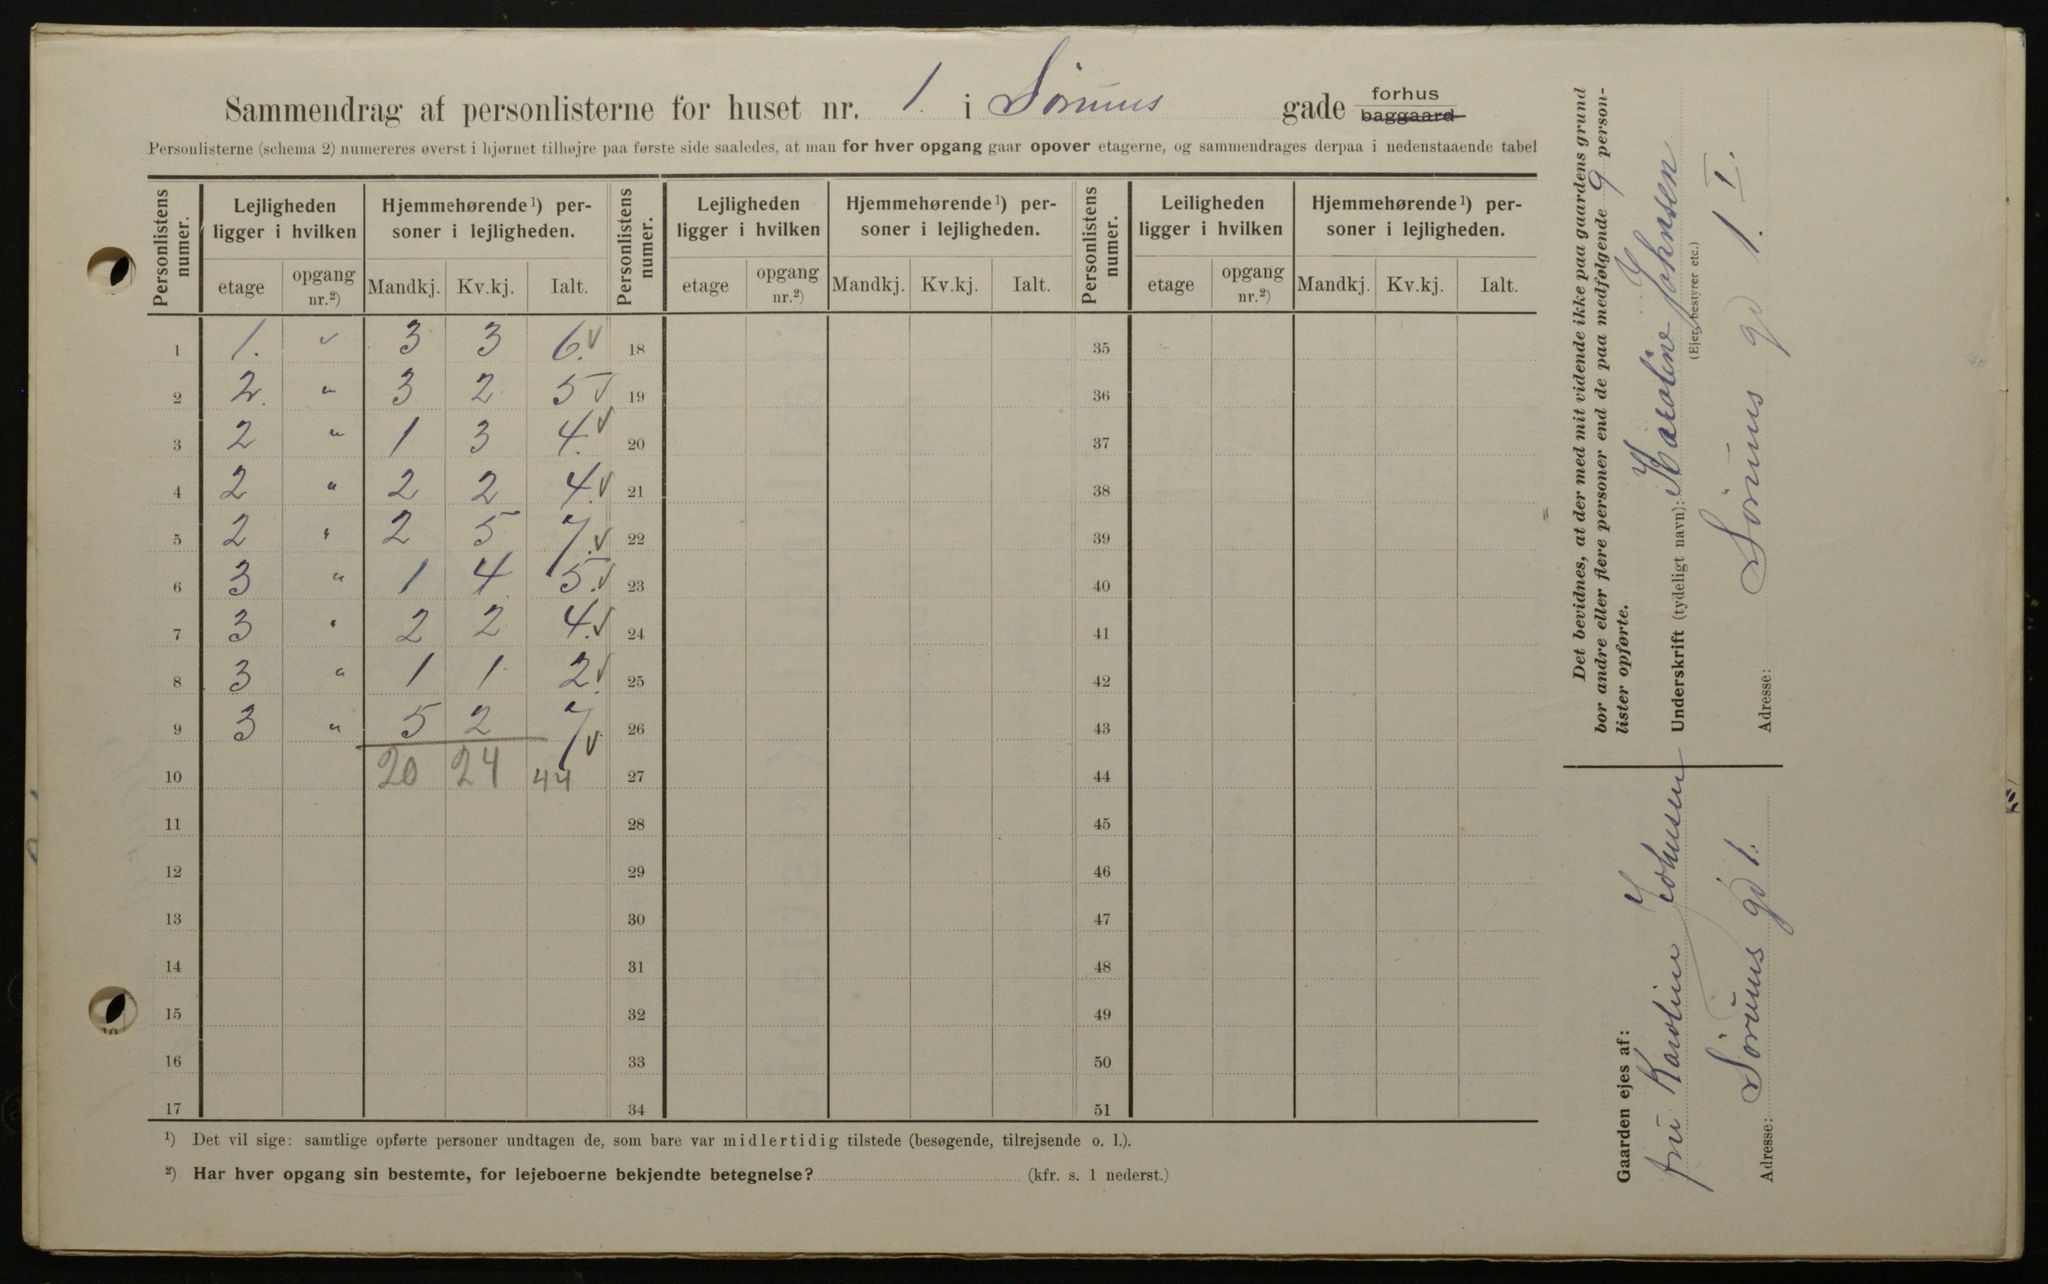 Sammendrag af personlisterne for huset nr. 1. i Sørums gade forhus baggaard
Personlisterne (schema 2) numereres øverst i hjørnet tilhøjre paa første side saaledes, at man for hver opgang gaar opover etagerne, og sammendrages derpaa i nedenstaaende tabel
Personlistens numer. Lejligheden ligger i hvilken Hjemmehørende ¹) personer i lejligheden. Personlistens numer. Lejligheden ligger i hvilken Hjemmehørende ¹) personer i lejligheden. Personlistens numer. Leiligheden ligger i hvilken Hjemmehørende ¹) personer i lejligheden.
etage opgang nr.²) Mandkj. Kv.kj. Ialt. etage opgang nr.²) Mandkj. Kv.kj. Ialt. etage opgang nr.²) Mandkj. Kv.kj. Ialt.
1 1. " 3 3 6. ✓ 18 35
2 2. " 3 2 5 ✓ 19 36
3 2 " 1 3 4. ✓ 20 37
4 2 " 2 2 4. ✓ 21 38
5 2 " 2 5 7. ✓ 22 39
6 3 " 1 4 5. ✓ 23 40
7 3 " 2 2 4. ✓ 24 41
8 3 " 1 1 2. ✓ 25 42
9 3 " 5 2 7 ✓ 26 43
10 20 24 44 27 44
11 28 45
12 29 46
13 30 47
14 31 48
15 32 49
16 33 50
17 34 51
¹) Det vil sige: samtlige opførte personer undtagen de, som bare var midlertidig tilstede (besøgende, tilrejsende o. l.).
²) Har hver opgang sin bestemte, for lejeboerne bekjendte betegnelse? (kfr. s. 1 nederst.)
Det bevidnes, at der med mit vidende ikke paa gaardens grund
bor andre eller flere personer end de paa medfølgende 9 person-
lister opførte.
Underskrift (tydeligt navn): Karoline Johnsen
(Ejer, bestyrer etc.)
Adresse: Sørums gd 1. I.
Gaarden ejes af:
fru Karoline Johnsen
Adresse: Sørums gd 1.